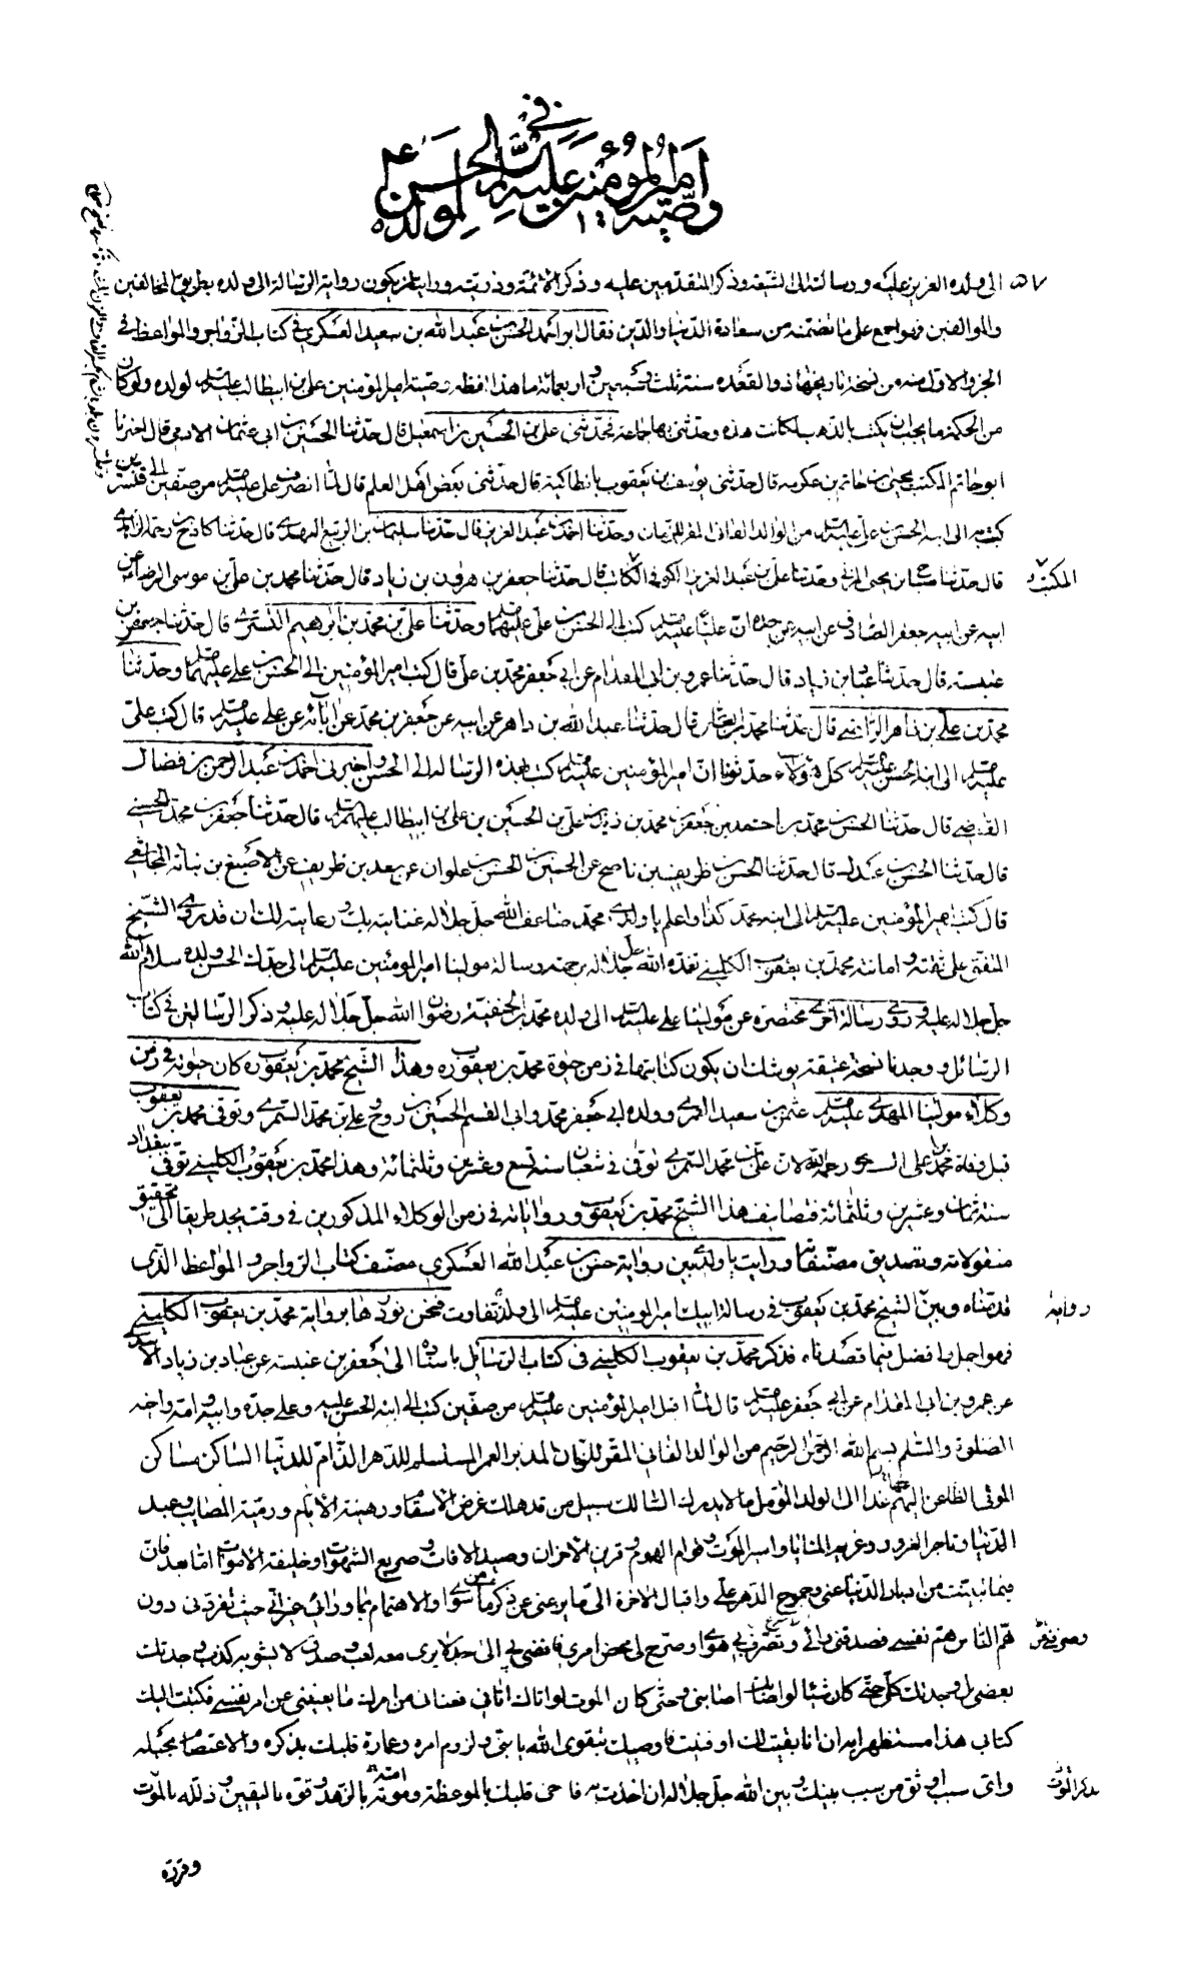 في
وصية امير المؤمنين عليه السلام لولده الحسن ع
الى ولده العزيز عليه ورسالته الى الشيعة وذكر المتقدمين عليه وذكر الائمة من ذريته ورايت ان يكون رواية الرسالة الى ولده بطريق المخالفين
والموالفين فهو اجمع على ما تضمنه من سعادة الدنيا والدين فقال ابو احمد الحسن بن عبد الله بن سعيد العسكري في كتاب الزواجر والمواعظ في
الجزو الاول منه من نسخة تاريخها ذو القعدة سنة ثلث وسبعين واربعمائة ما هذا لفظه وصية امير المؤمنين علي بن ابيطالب عليه السلام لولده ولو كان
من الحكمة ما يجب ان يكتب بالذهب لكانت هذه وحدثني بها جماعة فحدثني علي بن الحسين بن اسمعيل قال حدثنا الحسين بن ابي عثمان الادمي قال اخبرنا
ابو حاتم المكتب يحيى بن حاتم بن عكرمة قال حدثني يوسف بن يعقوب بانطاكية قال حدثني بعض اهل العلم قال لما انصرف علي عليه السلام من صفين الى قنسرين
كتب به الى ابنه الحسن بن علي عليه السلام من الوالد الفاني المقر للزمان وحدثنا احمد بن عبد العزيز قال حدثنا سليمان بن الربيع النهدي قال حدثنا كادح بن رحمة الزاهد
قال حدثنا صباح بن يحيى المزني وحدثنا علي بن عبد العزيز الكوفي الكاتب قال حدثنا جعفر بن هرون بن زياد قال حدثنا محمد بن علي بن موسى الرضا عن
المكتب
ابيه عن ابيه جعفر الصادق عن ابيه عن جده ان عليا عليه السلام كتب الى الحسن بن علي عليهما السلام وحدثنا علي بن محمد بن ابرهيم التستري قال حدثنا جعفر بن
عنبسة قال حدثنا عباد بن زياد قال حدثنا عمرو بن ابي المقدام عن ابي جعفر محمد بن علي قال كتب امير المؤمنين الى الحسن بن علي عليهما السلام وحدثنا
محمد بن علي بن زاهر الرازي قال حدثنا محمد بن العباس قال حدثنا عبد الله بن داهر عن ابيه عن جعفر بن محمد عن ابائه عن علي عليه السلام قال كتب علي
عليه السلام الى ابنه الحسن عليه السلام كل هؤلاء حدثونا ان امير المؤمنين عليه السلام كتب بهذه الرسالة الى الحسن واخبرني احمد بن عبد الرحمن بن فضال
القاضي قال حدثنا الحسن بن محمد بن احمد بن جعفر بن محمد بن زيد بن علي بن الحسين بن علي بن ابيطالب عليهم السلام قال حدثنا جعفر بن محمد الحسني
قال حدثنا الحسن بن عبدل قال حدثنا الحسن بن ظريف بن ناصح عن الحسين بن علوان عن سعد بن طريف عن الاصبغ بن نباتة المجاشعي
قال كتب امير المؤمنين عليه السلام الى ابنه محمد كذا واعلم يا ولدي محمد ضاعف الله جل جلاله عنايته بك ورعايته لك ان قد روى الشيخ
المتفق على ثقته وامانته محمد بن يعقوب الكليني تغمده الله جل جلاله برحمته رسالة مولينا امير المؤمنين عليه السلام الى جدك الحسن ولده سلام الله
جل جلاله عليه وروى رسالة اخرى مختصرة عن مولينا علي عليه السلام الى ولده محمد بن الحنفية رضوان الله جل جلاله عليه وذكر الرسالتين في كتاب
الرسائل ووجدنا نسخة عتيقة يوشك ان يكون كتابتها في زمن حيوة محمد بن يعقوب ره وهذا الشيخ محمد بن يعقوب كان حيوته في زمن
وكلاء مولينا المهدي عليه السلام عثمن بن سعيد العمري وولده ابي جعفر محمد وابي القسم الحسين بن روح وعلي بن محمد السمري وتوفي محمد بن يعقوب
قبل وفاة علي بن محمد السمري رحمه الله لان علي بن محمد السمري توفي في شعبان سنة تسع وعشرين وثلثمائة وهذا محمد بن يعقوب الكليني توفي ببغداد
سنة ثمان وعشرين وثلثمائة فتصانيف هذا الشيخ محمد بن يعقوب ورواياته في زمن الوكلاء المذكورين في وقت يجد طريقا الى تحقيق
منقولاته وتصديق مصنفاته ورايت يا ولدي بين رواية حسن بن عبد الله العسكري مصنف كتاب الزواجر والمواعظ الذي
قدمناه وبين الشيخ محمد بن يعقوب في رسالة ابيك امير المؤمنين عليه السلام الى ولده تفاوت فنحن نوردها برواية محمد بن يعقوب الكليني
رواية
فهو اجمل وافضل فيما قصدناه فذكر محمد بن يعقوب الكليني في كتاب الرسائل باسناده الى جعفر بن عنبسة عن عباد بن زياد الاسدي
عن عمرو بن ابي المقدام عن ابي جعفر عليه السلام قال لما اقبل امير المؤمنين عليه السلام من صفين كتب الى ابنه الحسن عليه وعلى جده وابيه وامه واخيه
الصلوة والسلام بسم الله الرحمن الرحيم من الوالد الفاني المقر للزمان المدبر العمر المستسلم للدهر الذام للدنيا الساكن مساكن
الموتى الظاعن اليهم عنها غدا الى الولد المؤمل ما لا يدرك السالك سبيل من قد هلك غرض الاسقام ورهينة الايام ورمية المصايب وعبد
الدنيا وتاجر الغرور وغريم المنايا واسير الموت وقوام الهموم وقرين الاحزان وصيد الافات وصريع الشهوات وخليفة الاموات اما بعد فان
فيما تبينت من ادبار الدنيا عني وجموح الدهر علي واقبال الاخرة الى ما يزعني عن ذكر من سواي والاهتمام بما ورائي غير اني حيث تفرد بي دون
هم الناس هم نفسي فصدقني رائي وصرفني هواي وصرح لي محض امري فافضى بي الى جد لا يرى معه لعب وصدق لا يشوبه كذب وجدتك
بعضي بل وجدتك كلي حتى كان شيئا لو اصابك اصابني وحتى كان الموت لو اتاك اتاني فعناني من امرك ما يعنيني عن امر نفسي فكتبت اليك
كتابي هذا مستظهرا به ان انا بقيت لك او فنيت فاوصيك بتقوى الله يا بني ولزوم امره وعمارة قلبك بذكره والاعتصام بحبله
واي سبب اوثق من سبب بينك وبين الله جل جلاله ان اخذت به فاحي قلبك بالموعظة وموته امته بالزهد وقوه باليقين وذلله بالموت
بذكر الموت
وقرره